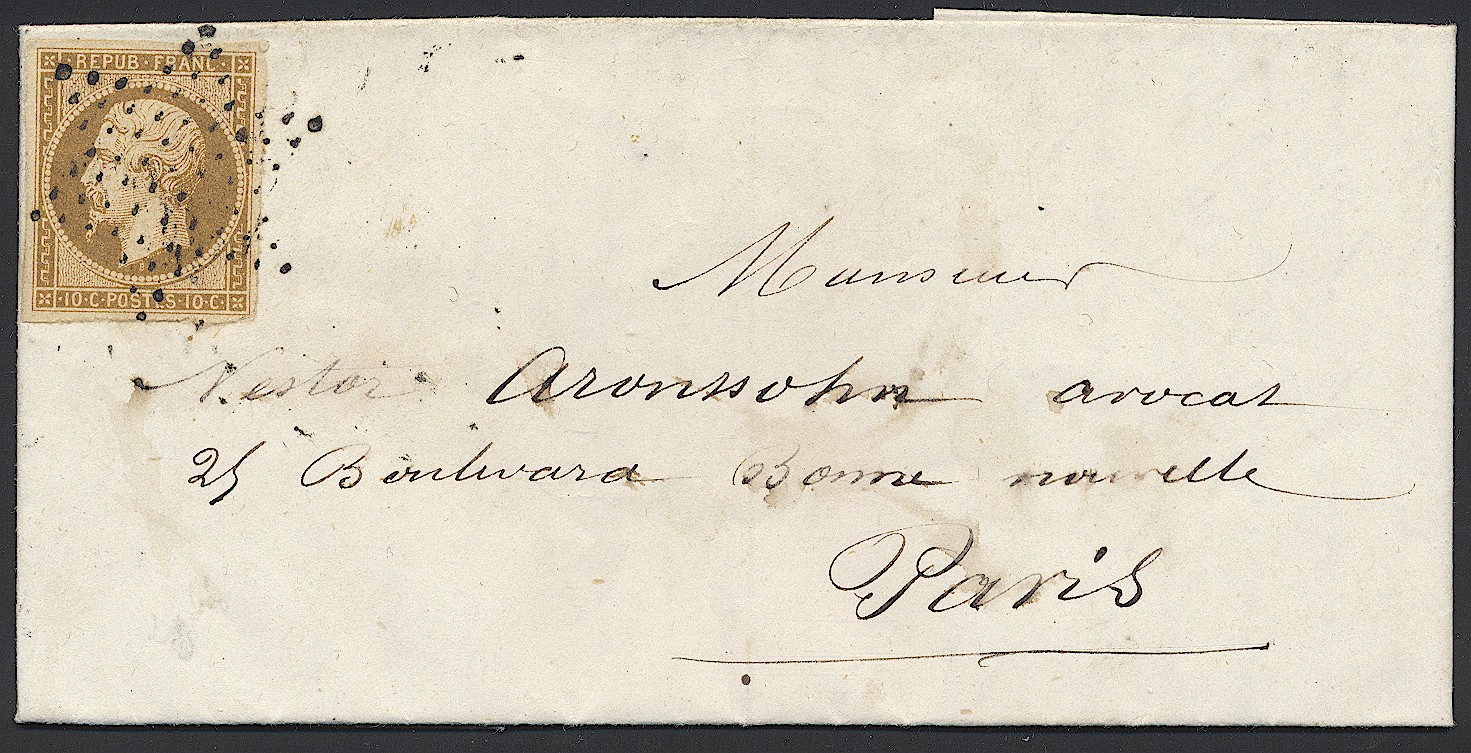 REPUB·FRANC·
·10·C·POSTES·10·C·
Monsieur
Nestor Aronssohn avocat
25 Boulevard Bonne nouvelle
Paris